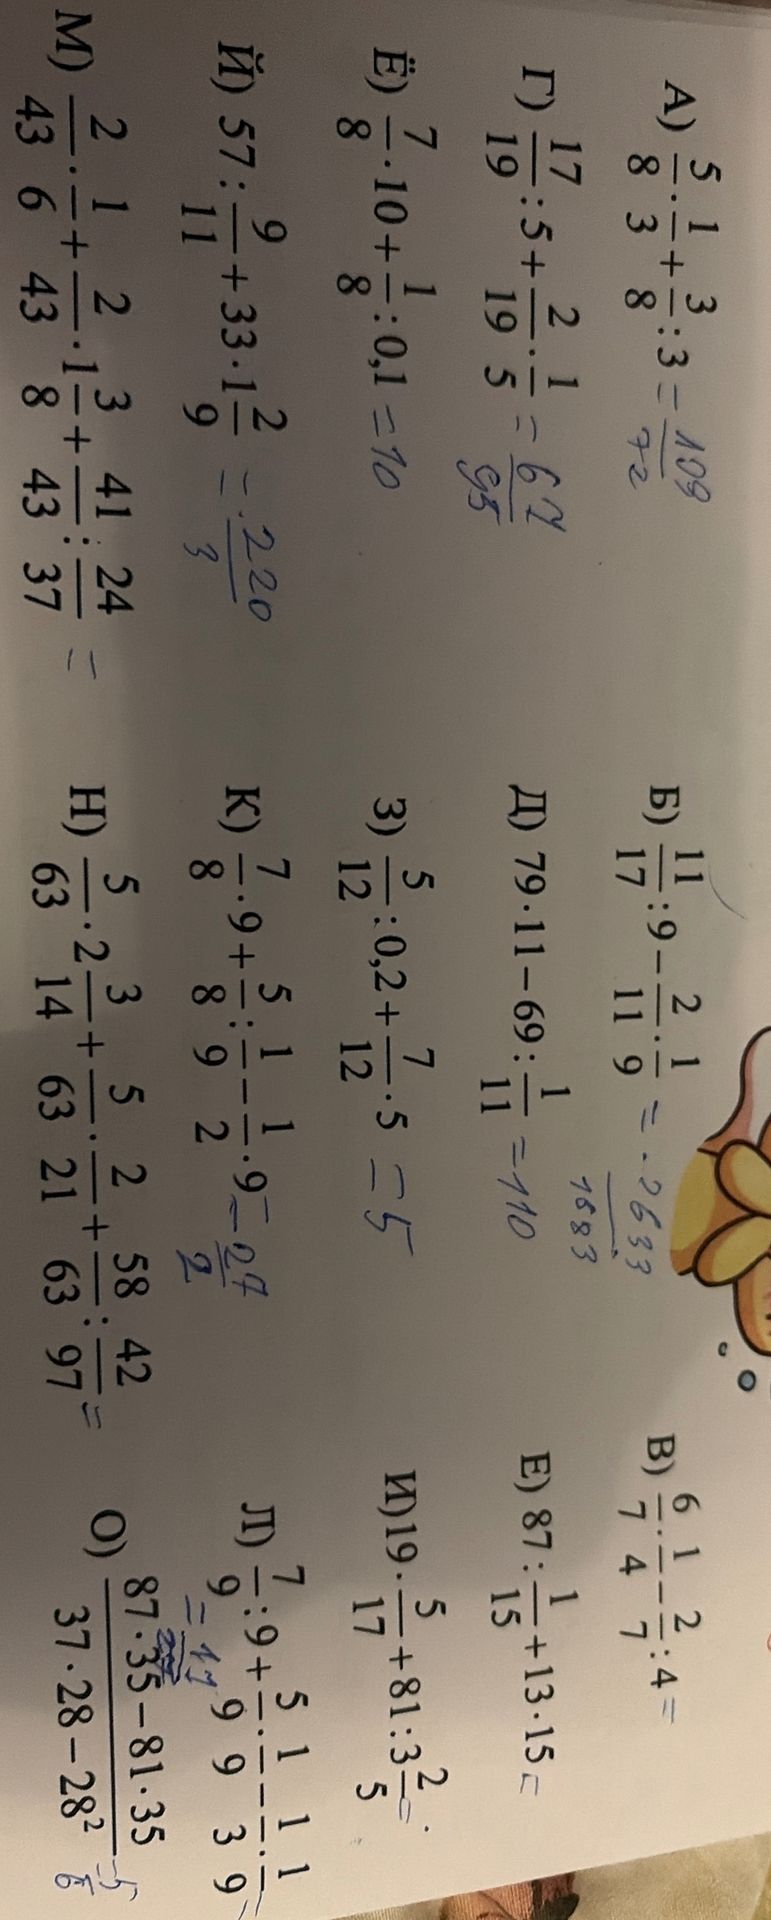 А) 5/8 · 1/3 + 3/8 : 3 = 109/72
Б) 11/17 : 9 − 2/11 · 1/9 = 2633/1683
В) 6/7 · 1/4 − 2/7 : 4 =
Г) 17/19 : 5 + 2/19 · 1/5 = 67/95
Д) 79 · 11 − 69 : 1/11 = 110
Е) 87 : 1/15 + 13 · 15 =
Ё) 7/8 · 10 + 1/8 : 0,1 = 10
З) 5/12 : 0,2 + 7/12 · 5 = 5
И) 19 · 5/17 + 81 : 3 2/5 =
Й) 57 : 9/11 + 33 · 1 2/9 = 220/3
К) 7/8 · 9 + 5/8 : 1/9 − 1/2 · 9 = 27/2
Л) 7/9 : 9 + 5/9 · 1/9 − 1/3 · 1/9 =
= 11
М) 2/43 · 1/6 + 2/43 · 1 3/8 + 41/43 : 24/37 =
Н) 5/63 · 2 3/14 + 5/63 · 2/21 + 58/63 : 42/97 =
О) (87 · 35 − 81 · 35)/(37 · 28 − 28²) = 5/6